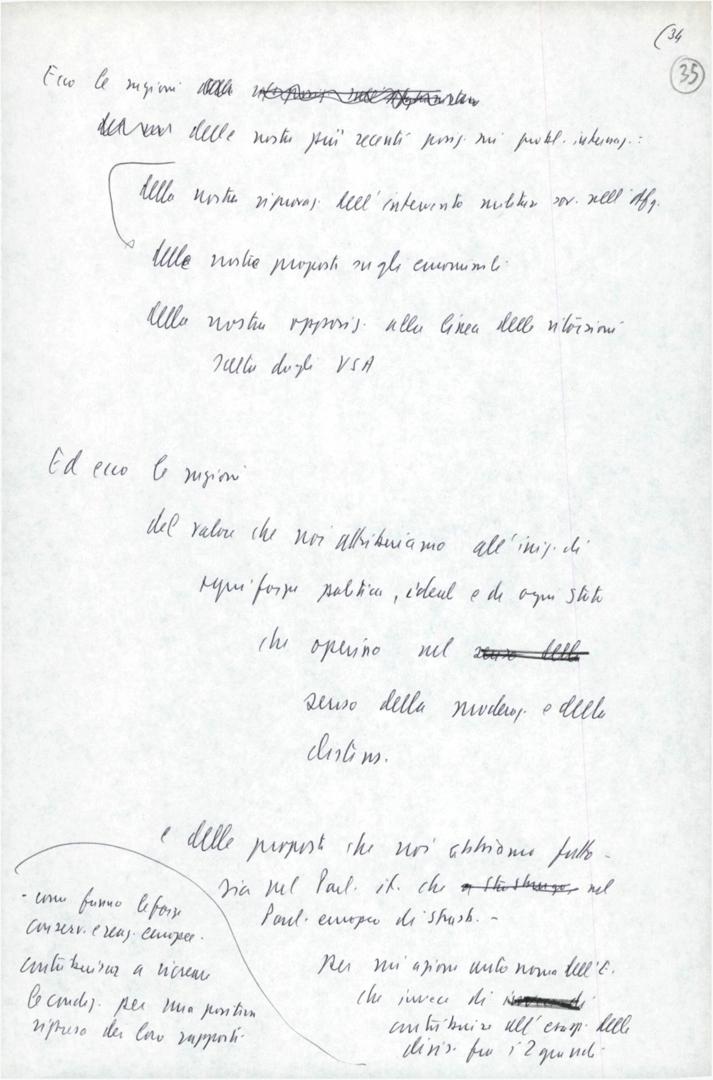 (34
35
Ecco le ragioni
delle nostre più recenti posiz. sui probl. internaz.:
della nostra riprovaz. dell'intervento militare sov. nell'Afg.
delle nostre proposte sugli euromissili
della nostra opposiz. alla linea delle ritorsioni
scelta dagli USA
Ed ecco le ragioni
del valore che noi attribuiamo all'iniz. di
ogni forza politica, ideal e di ogni stato
che operino nel
senso della moderaz. e della
distens.
e delle proposte che noi abbiamo fatto -
sia nel Parl. it. che a Strasburgo, nel
Parl. europeo di Strasb. -
per un'azione autonoma dell'E.
che invece di
contribuire all'esasp. delle
divis. fra i 2 grandi
- come fanno le forze
conserv. e reaz. europee -
contribuisca a ricreare
le condiz. per una positiva
ripresa dei loro rapporti.